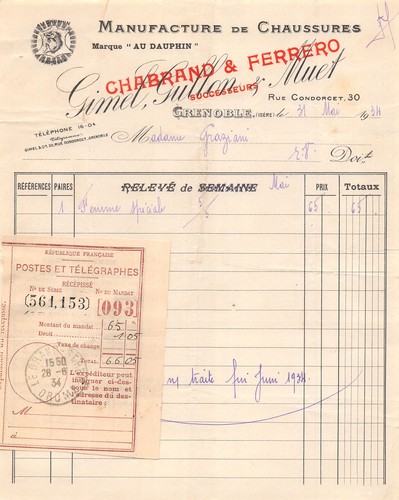 MANUFACTURE DE CHAUSSURES
Marque "AU DAUPHIN"
CHABRAND & FERRERO
SUCCESSEURS
Gimel, Gullon & Muet
RUE CONDORCET, 30
TÉLÉPHONE 16-04
Télégrammes
GIMEL & Cie 30, RUE CONDORCET, GRENOBLE
GRENOBLE, (ISÈRE) le 31 Mai 1934
Madame Graziani
E.V. Doit
RÉFÉRENCES PAIRES RELEVÉ de SEMAINE Mai PRIX Totaux
1 Femme spéciale 65 65
RÉPUBLIQUE FRANÇAISE
POSTES ET TÉLÉGRAPHES
RÉCÉPISSÉ
No DE SÉRIE No DU MANDAT
(561,153) 093
Montant du mandat 65
Droit 1 05
Taxe de change
TOTAL 66 05
L'expéditeur peut
indiquer ci-des-
sous le nom et
l'adresse du des-
tinataire :
M
15 50
28-6
34
DROME
traite fin Juin 1934